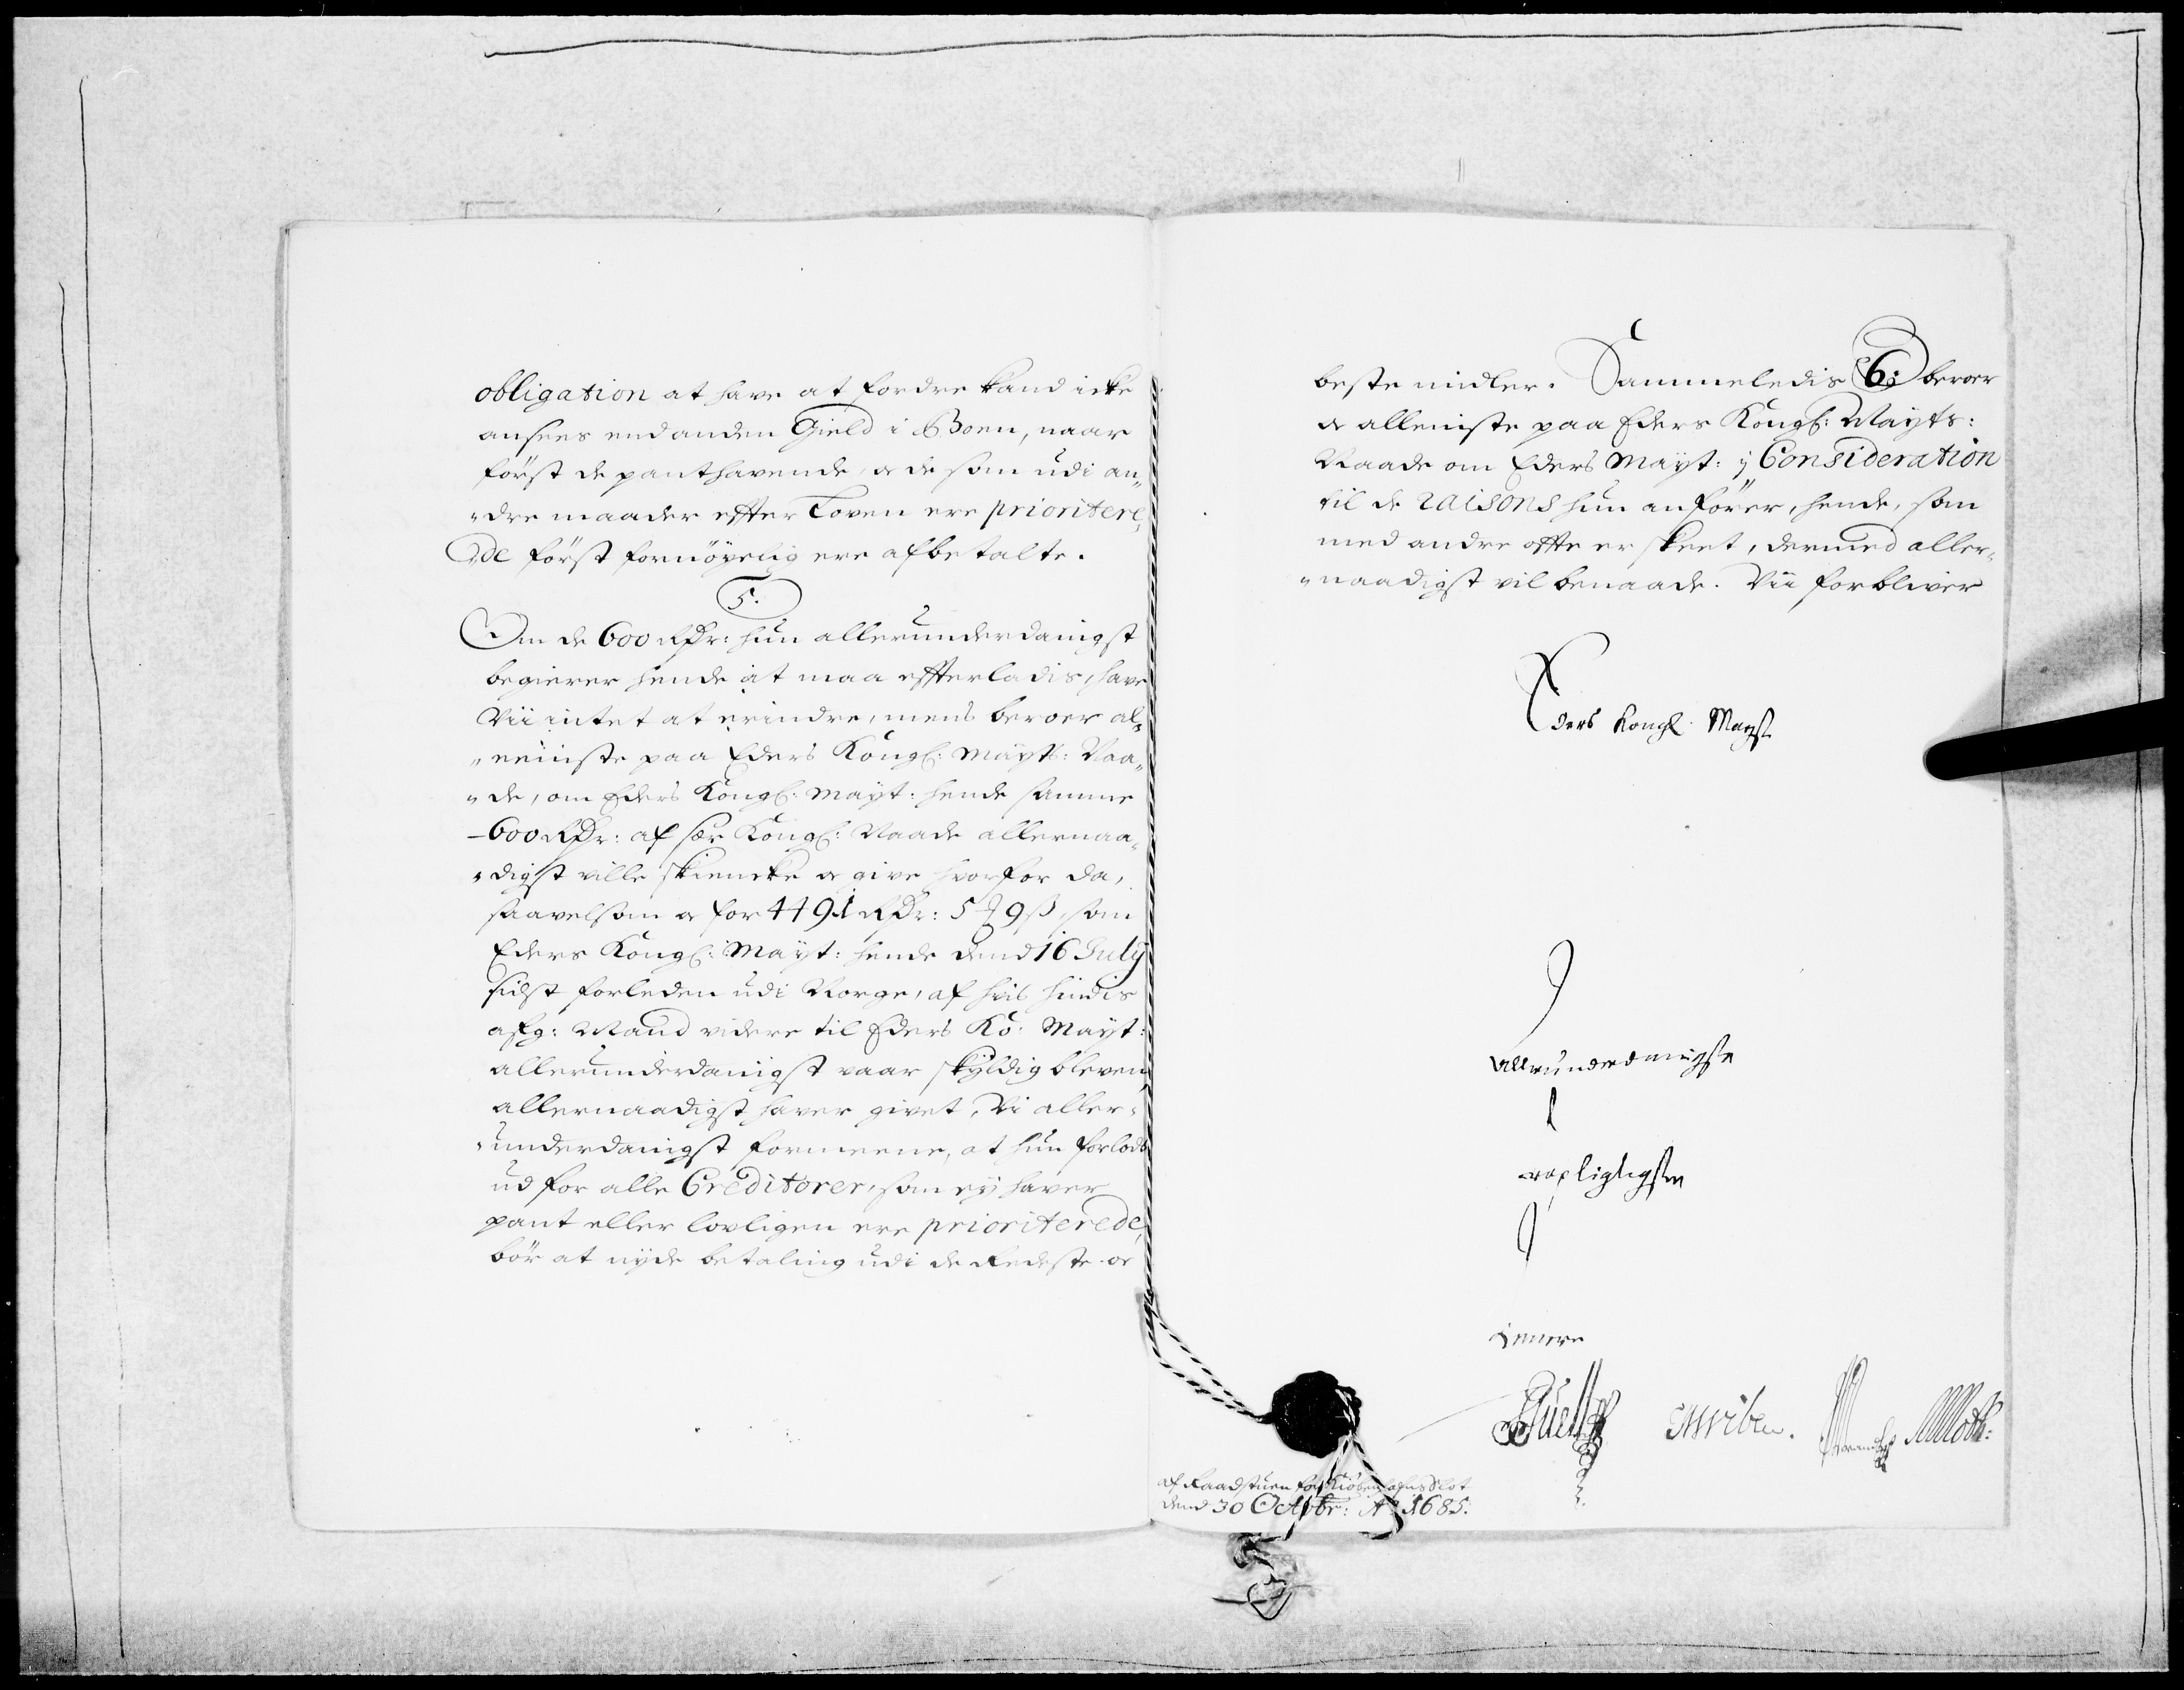 obligation at have at fordre kand icke
ansees end anden Gield i Boen, naar
först de panthavende, a de som udi an„
„dre maader effter Loven ere prioritere„
de först fornöyelig ere afbetalte.
5.
Om de 600 Rdr: hun allerunderdanigst
begierer hende at maa effterladis, have
Vii intet at erindre, mens beroer al„
„leeniste paa Eders Kongl: Mayts: Naa„
„de, om Eders Kongl: Mayt: hende samme
600 Rdr: af sær Kongl: Naade allernaa„
„digst ville skiencke a give hvorfor da,
saavelsom a for 4491 Rdr: 5 ₰ 9 ß, som
Eders Kongl: Mayt: hende dend 16 July
sidst forleden udi Norge, af hvis hindis
afg: Mand videre til Eders Ko: Mayt:
allerunderdanigst vaar skyldig bleven,
allernaadigst haver givet, Vi aller„
„underdanigst formeene, at hun forlods
ud for alle Creditorer, som ey haver
pant eller lovligen ere prioriterede,
bör at nyde betaling udi de Redeste a
beste midler. Sammeledis 6: beroer
a alleniste paa Eders Kongl: Mayts:
Naade om Eders Mayt: i Consideration
til de raisons hun anförer, hende, som
med andre offte er skeet, dermed aller„
„naadigst vil benaade. Vii forbliver
Eders Kongl. Mayst
allerunderdanigste
pligtigste
tienere
Moth:
af Raadstuen for Kiöbenhafns Slot
dend 30 Octobr: Ao 1685.